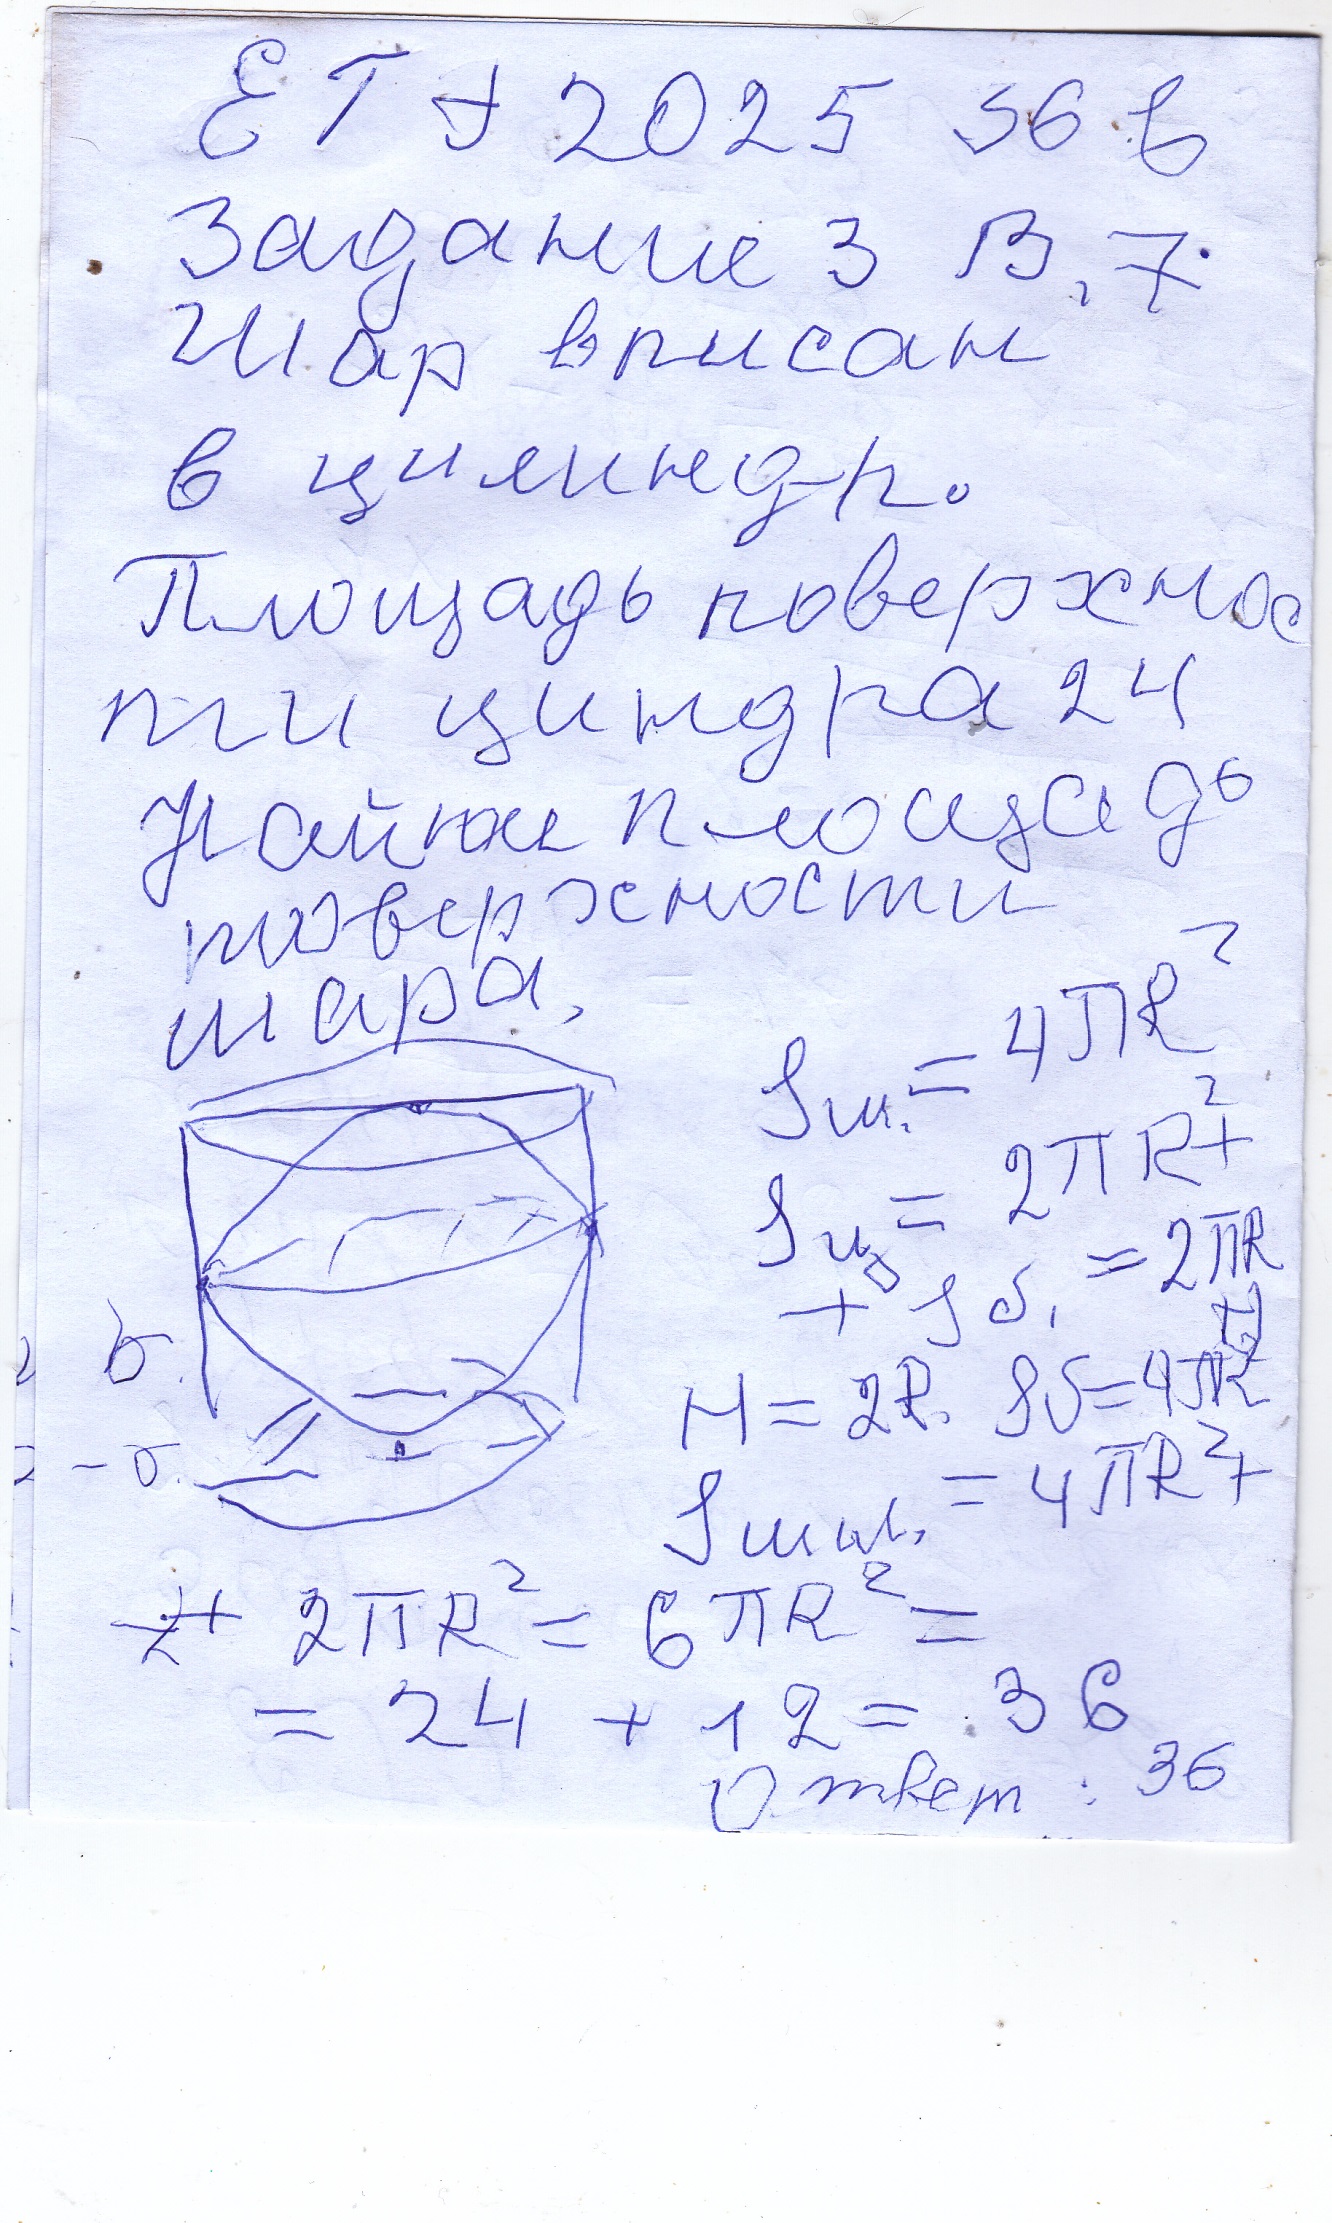 ЕГЭ 2025 36 в
Задание 3 В. 7.
Шар вписан
в цилиндр.
Площадь поверхнос
ти циндра 24
Найти площадь
поверхности
шара.
Sш. = 4πR²
Sц = 2πR² +
+ Sб. = 2πR
H = 2R. Sб = 4πR²
= 4πR² +
+ 2πR² = 6πR² =
= 24 + 12 = 36
Ответ : 36